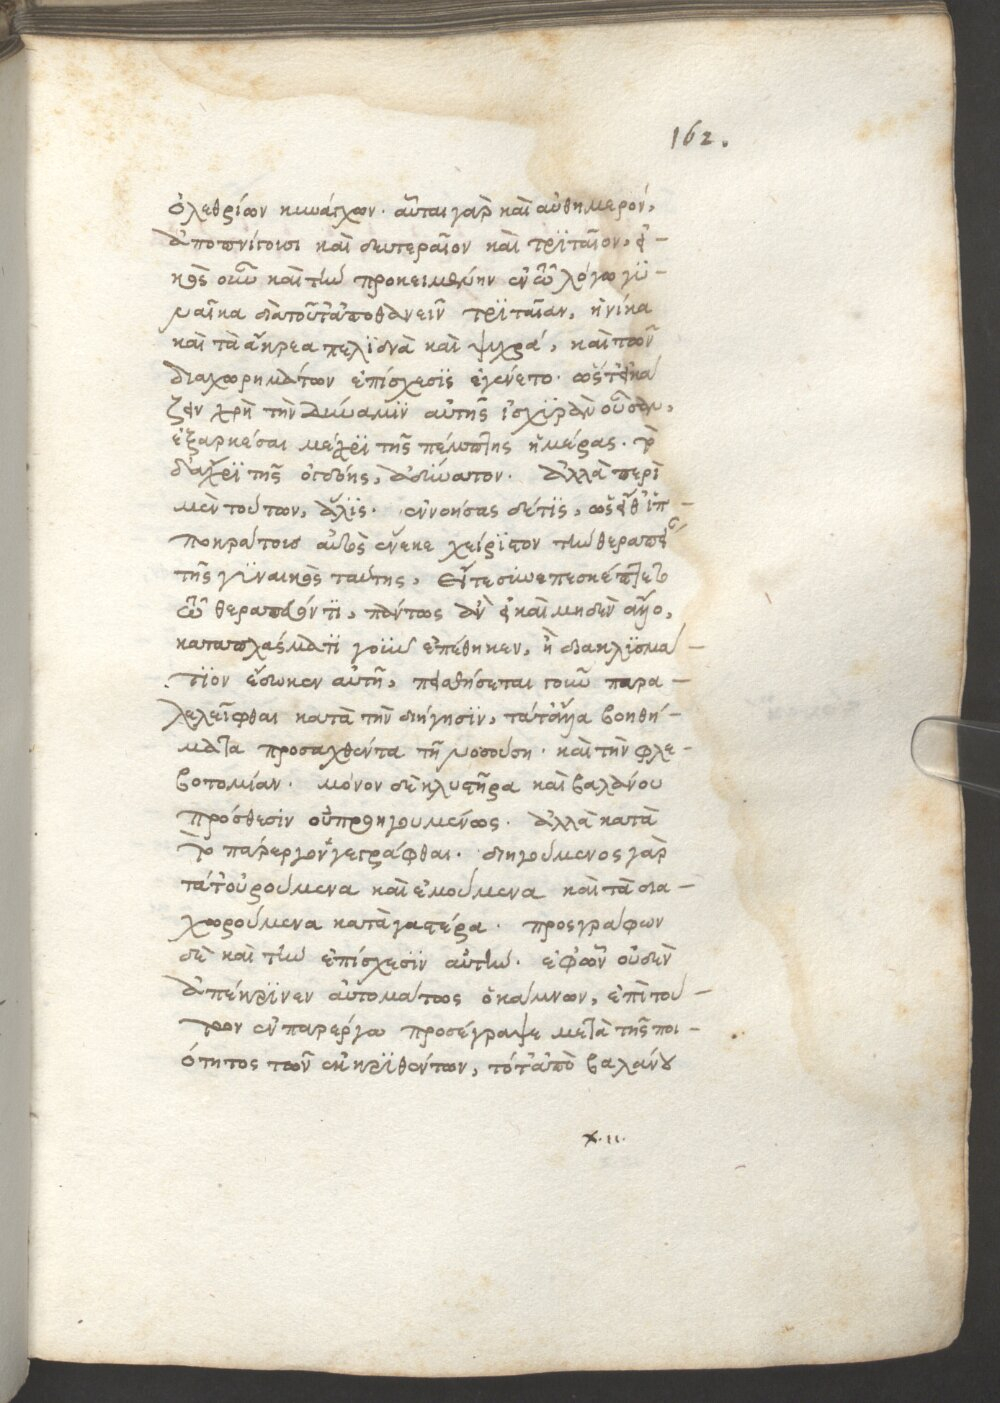 162.
ὀλεθρίων κυνάγχων. αὗται γὰρ καὶ αὐθημερόν,
ἀποπνίγουσι καὶ δευτεραῖον καὶ τρϊταῖον, εἰ-
κὸς οὖν καὶ τὴν προκειμένην ἐν τῶ λόγω γϋ-
ναῖκα διὰ τοῦτ' ἀποθανεῖν τρϊταίαν, ἡνίκα
καὶ τὰ ἄκρεα πελϊδνὰ καὶ ψυχρά, καὶ τῶν
διαχωρημάτων ἐπίσχεσϊς ἐγένετο. ὥστ' εἰκά
ζειν χρὴ τὴν δύναμϊν αὐτῆς ἰσχϋρὰν οὖσαν,
ἐξαρκέσαι μέχρϊ τῆς πέμπτης ἡμέρας.
ἄχρϊ τῆς ὀγδόης, ἀδύνατον. ἀλλὰ περὶ
μὲν τούτων, ἅλϊς. ἐννοήσας δέ τϊς, ὡς εἴθ' ἱπ-
ποκράτους αὐτὸς ἕνεκε χείρϊστον τὴν θεραπεί
τῆς γϋναικὸς ταύτης, εἴτε συνεπεσκέπτετο
τῶ θεραπεύοντϊ, πάντως ἂν εἰ καὶ μηδὲν ἄλλο,
καταπλάσματϊ γοῦν ἐπέθηκεν, ἢ διακλϋσμά-
τϊον ἔδωκεν αὐτῆ, πεισθήσεται γοῦν παρα-
λελεῖφθαι κατὰ τὴν διήγησϊν, τά τ' ἄλλα βοηθή-
ματα προσαχθέντα τῆ νοσούση. καὶ τὴν φλε-
βοτομίαν. μόνον δὲ κλυστῆρα καὶ βαλάνου
πρόσθεσϊν οὐ προηγουμένως. ἀλλὰ κατὰ
τὸ πάρεργον γεγράφθαι. διηγούμενος γὰρ
τά τ' οὐρούμενα καὶ ἐμούμενα καὶ τὰ δια-
χωρούμενα κατὰ γαστέρα. προσγράφων
δὲ καὶ τὴν ἐπίσχεσϊν αὐτῶν. ἐφ' ὧν οὐδὲν
ἀπέκρϊνεν αὐτομάτως ὁ κάμνων, ἐπὶ τού-
των ἐν παρέργω προσέγραψε μετὰ τῆς ποι-
ότητος τῶν ἐκκρϊθέντων, τό τ' ἀπὸ βαλάνου
x. ii.